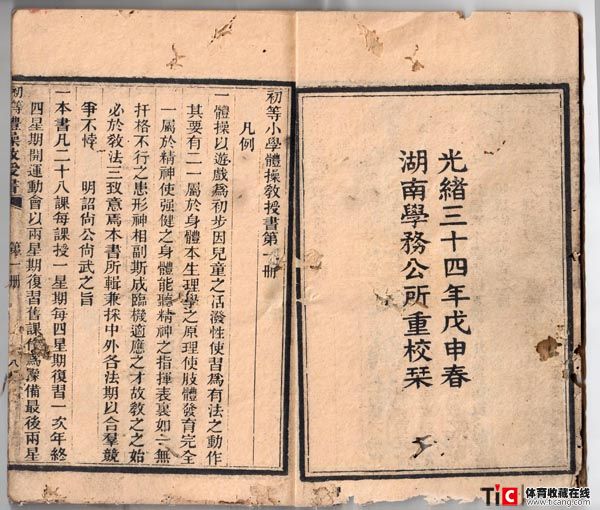 光緒三十四年戊申春
湖南學務公所重校栞
初等小學體操教授書第一冊
凡例
一體操以遊戲爲初步因兒童之活潑性使習爲有法之動作
其要有二一屬於身體本生理學之原理使肢體發育完全
一屬於精神使强健之身體能聽精神之指揮表裏如一無
扞格不行之患形神相副斯成臨機適應之才故敎之之始
必於敎法三致意焉本書所輯兼採中外各法期以合羣競
爭不悖　明詔尙公尙武之旨
一本書凡二十八課每課授一星期每四星期復習一次年終
四星期開運動會以兩星期復習舊課作爲豫備最後兩星
初等體操敎授書
第一冊
八
TIC 体育收藏在线
www.ticang.com